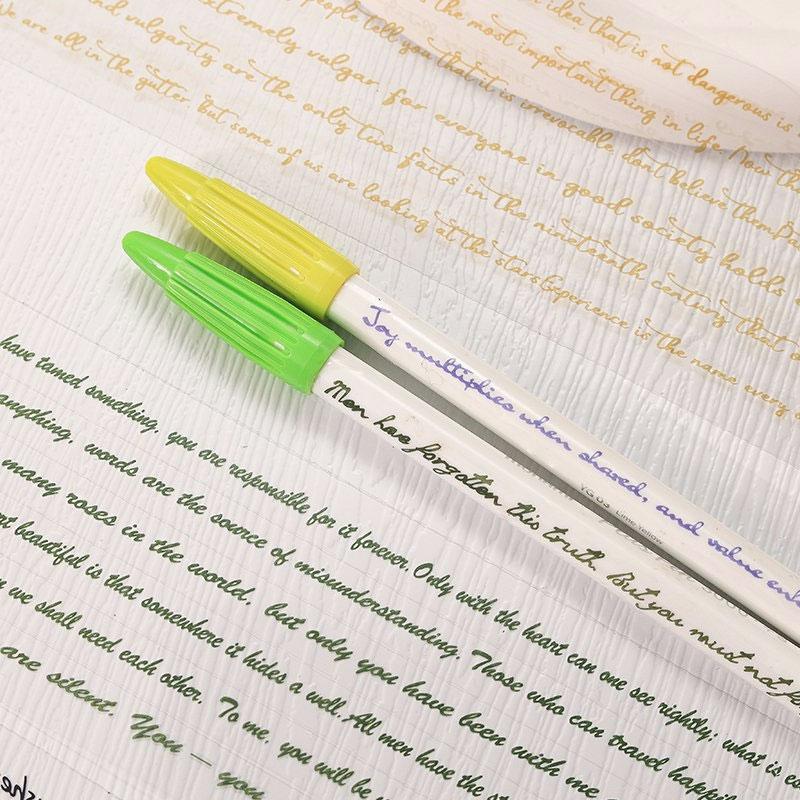 idea that is not dangerous is
people tell you the most important thing in life. Now
and vulgarity extremely vulgar. for everyone that it is irrevocable, don't believe them.
are all in the vulgarity are the only two facts in good society holds
the gutter. but some of us are looking in the nineteenth century that
at the stars Experience is the name every
Joy multiplies when shared, and value
YG03 Lime Yellow
Men have forgotten this truth. But you must not
have tamed something, you are responsible for it forever. Only with the heart can one see rightly; what is
anything, words are the source of misunderstanding. Those who can travel
many roses in the world, but only you have been with me
beautiful is that somewhere it hides a well. All men have the
we shall need each other. To me, you will be
are silent. You – you